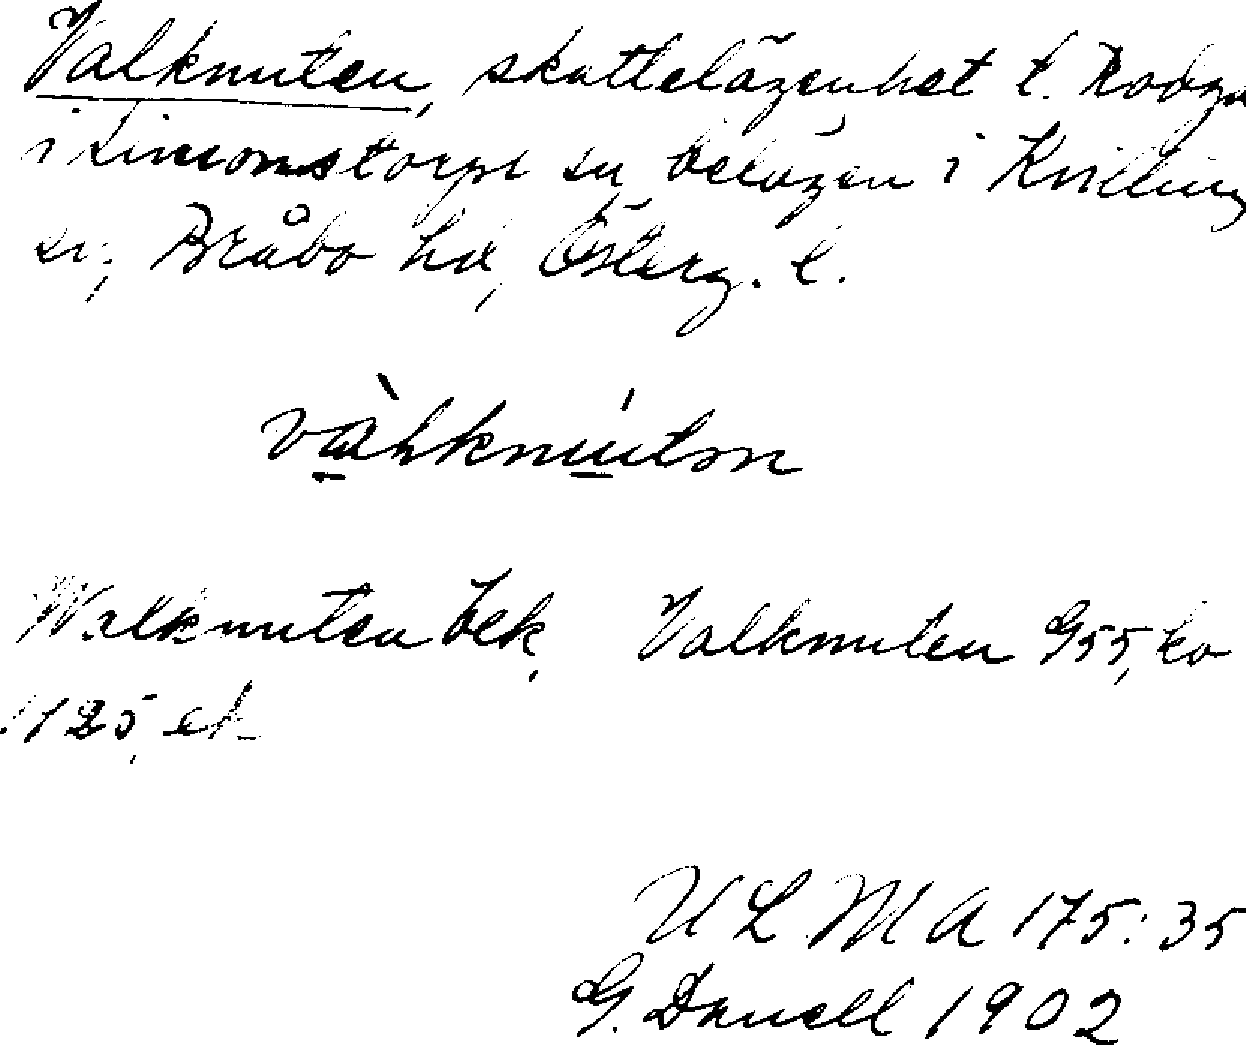 Valknuten, skattelägenhet t. Rodga
i Simonstorps sn, belägen i Kvillinge
sn, Bråbo hd, Österg. l.
vàhknútnn
Walknuten bek, Valknuten G55, ko
1125, ek
ULMA 175:35
G. Danell 1902